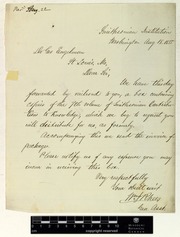 Smithsonian Institution
Washington Aug 18
Mr Geo Engelmann
St Louis, Mo.
Dear Sir,
We have this day
forwarded by railroad to you, a box containing
copies of the 7th volume of Smithsonian Contribu-
tions to Knowledge, which we beg to request you
will distribute for us, as formerly.
Accompanying this we send the invoice of
packages.
Please notify us of any expense you may
incur in receiving this box.
Very respectfully
Your Obdt Servt